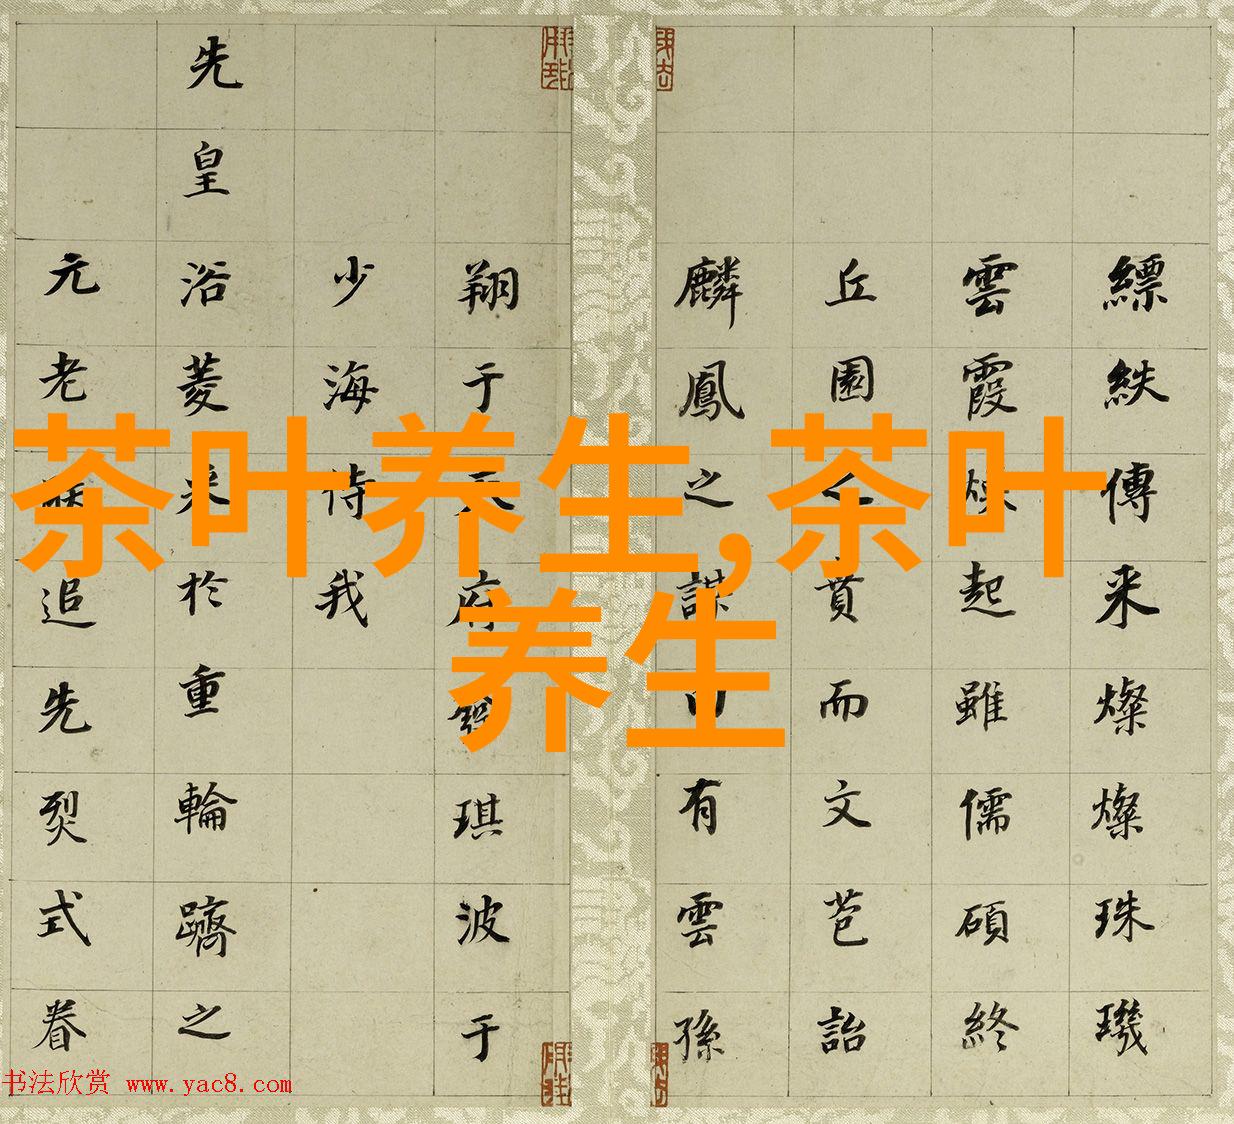 縹帙傳来燦燦珠璣
雲霞煥起雖儒碩終
丘園之賁而文芭詒
麟鳳之謀有雲孫
翔于天府
琪波于
少海侍我
先皇浴菱采於重輪躋之
元老追先烈式眷
茶叶养生,茶叶
养生
书法欣赏 www.yac8.com